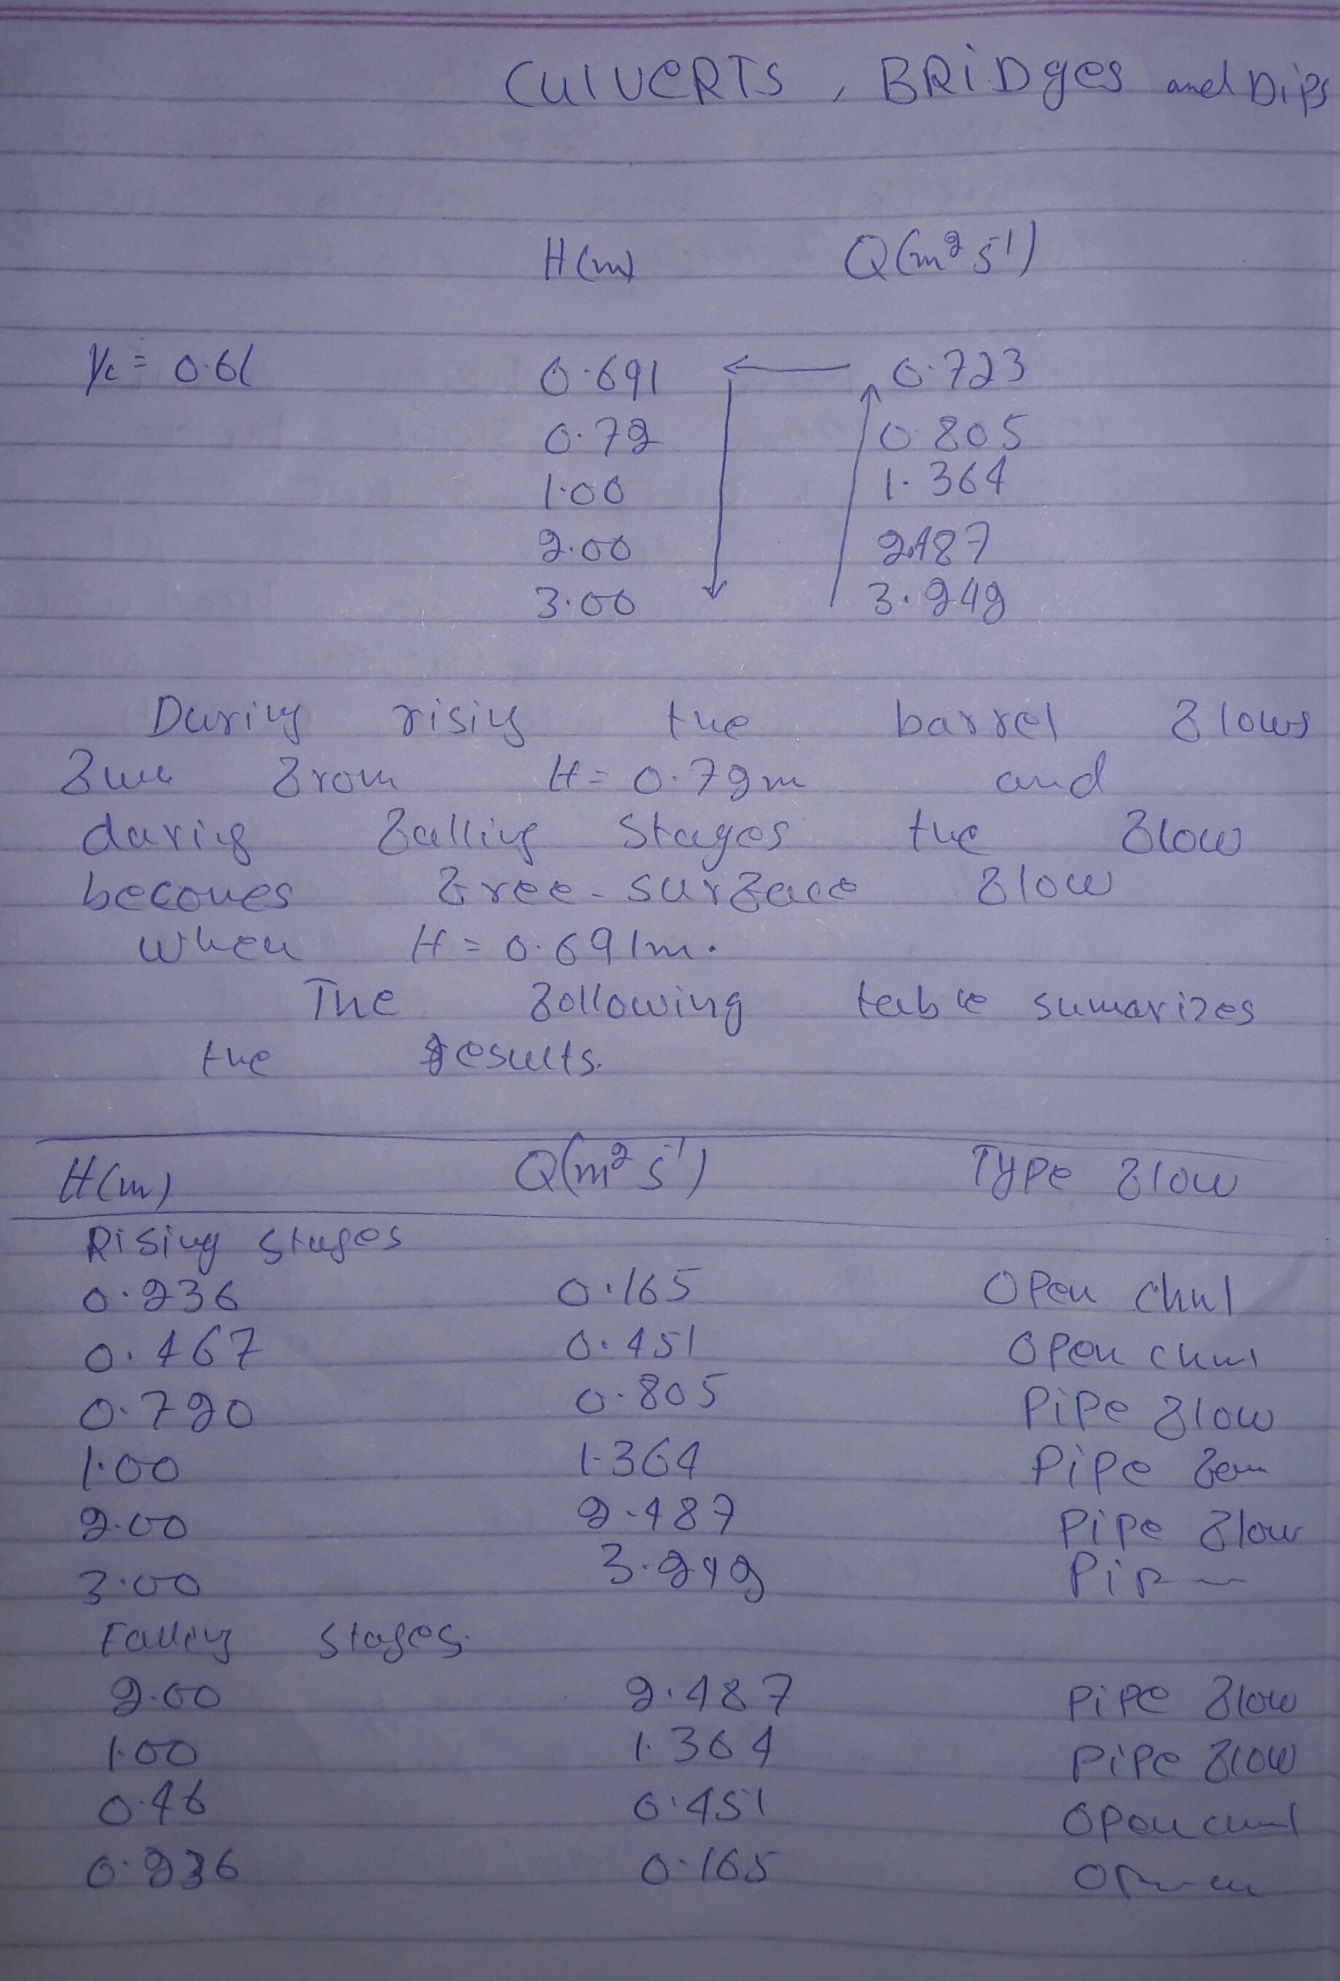 CULVERTS, BRIDges and Dips
H(m) Q(m² s⁻¹)
yc = 0.61 0.691 ← 0.723
0.72 0.805
1.00 1.364
2.00 2.487
3.00 3.242
During rising the barrel flows
full from H = 0.72m and
during falling stages the flow
becomes free-surface flow
when H = 0.691m.
The following table sumarizes
the results.
H(m) Q(m² s⁻¹) Type flow
Rising stages
0.236 0.165 Open chnl
0.467 0.451 Open chnl
0.720 0.805 Pipe flow
1.00 1.364 Pipe
2.00 2.487 Pipe flow
3.00 3.242 Pip
Falling stages.
2.00 2.487 Pipe flow
1.00 1.364 Pipe flow
0.46 0.451 Open chnl
0.236 0.165